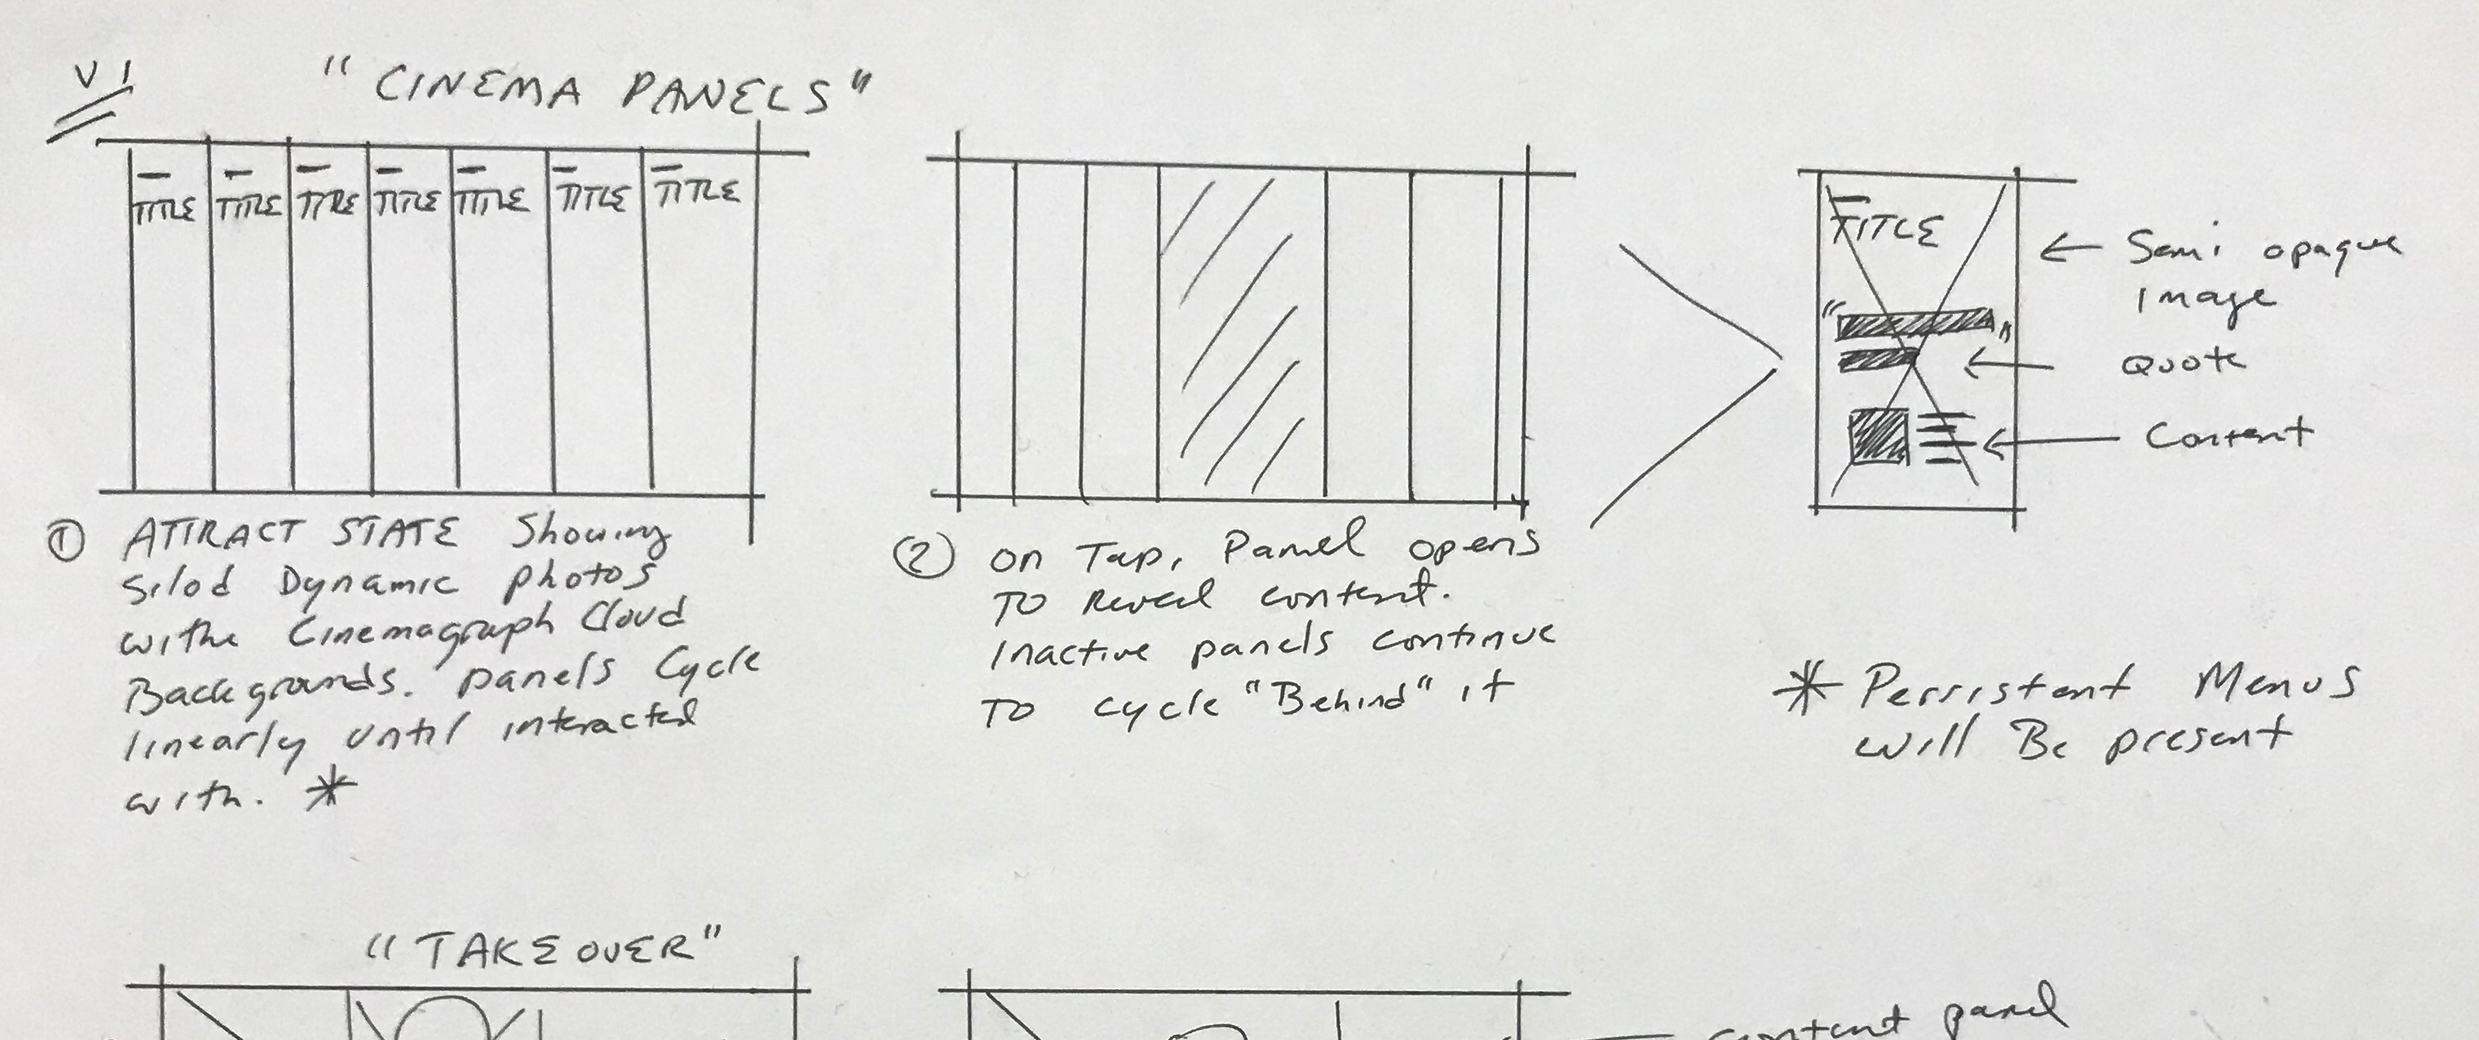 V1
"CINEMA PANELS"
TITLE TITLE TITLE TITLE TITLE TITLE TITLE
① ATTRACT STATE Showing
Silod Dynamic photos
withe Cinemagraph Cloud
Backgrounds. panels Cycle
linearly until interacted
with. *
② on Tap, Panel opens
TO Reveal content.
Inactive panels continue
TO cycle "Behind" it
TITLE
Semi opaque
Image
Quote
Content
* Persistent Menus
will Be present
"TAKEOVER"
content panel